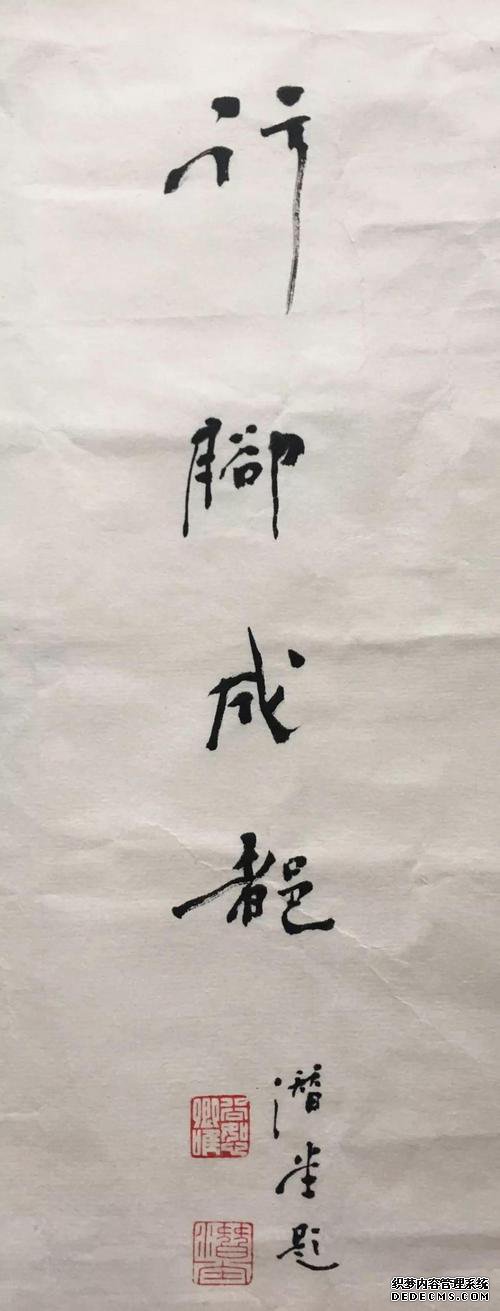 行腳成都
潛堂題
织梦内容管理系统
DEDECMS.COM